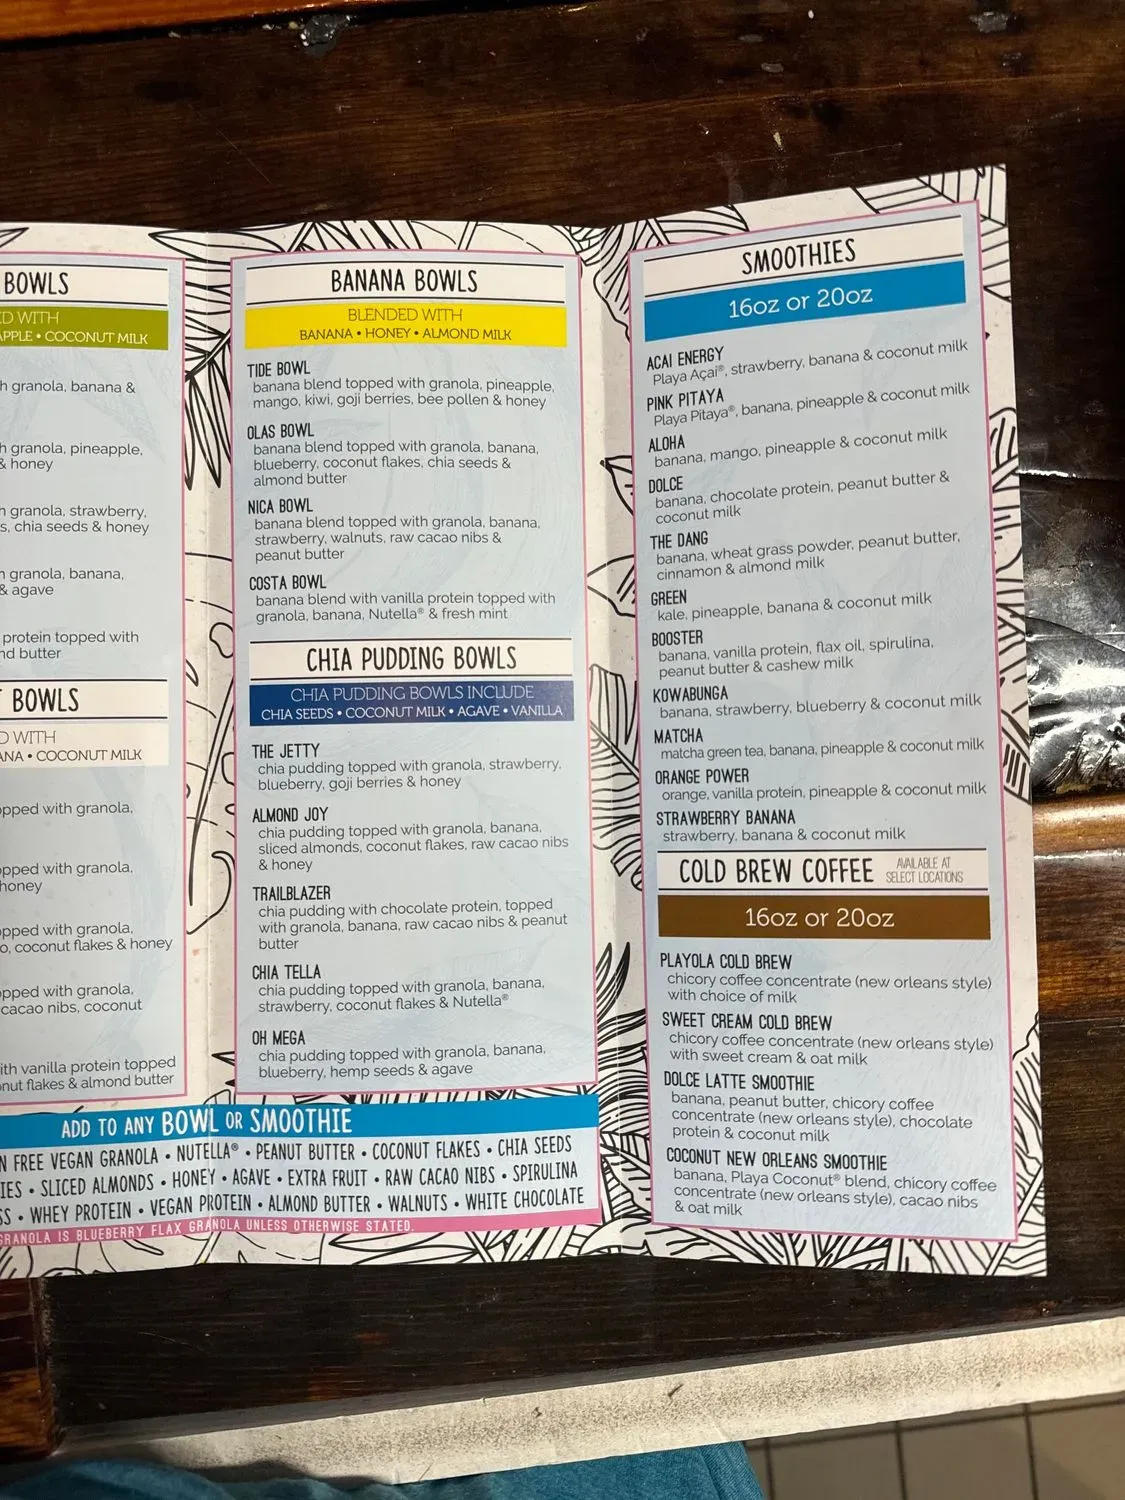 BOWLS
D WITH
APPLE • COCONUT MILK
h granola, banana &
h granola, pineapple,
& honey
h granola, strawberry,
s, chia seeds & honey
h granola, banana,
& agave
protein topped with
nd butter
T BOWLS
D WITH
ANA • COCONUT MILK
opped with granola,
opped with granola,
honey
opped with granola,
o, coconut flakes & honey
opped with granola,
cacao nibs, coconut
ith vanilla protein topped
onut flakes & almond butter
BANANA BOWLS
BLENDED WITH
BANANA • HONEY • ALMOND MILK
TIDE BOWL
banana blend topped with granola, pineapple,
mango, kiwi, goji berries, bee pollen & honey
OLAS BOWL
banana blend topped with granola, banana,
blueberry, coconut flakes, chia seeds &
almond butter
NICA BOWL
banana blend topped with granola, banana,
strawberry, walnuts, raw cacao nibs &
peanut butter
COSTA BOWL
banana blend with vanilla protein topped with
granola, banana, Nutella® & fresh mint
CHIA PUDDING BOWLS
CHIA PUDDING BOWLS INCLUDE
CHIA SEEDS • COCONUT MILK • AGAVE • VANILLA
THE JETTY
chia pudding topped with granola, strawberry,
blueberry, goji berries & honey
ALMOND JOY
chia pudding topped with granola, banana,
sliced almonds, coconut flakes, raw cacao nibs
& honey
TRAILBLAZER
chia pudding with chocolate protein, topped
with granola, banana, raw cacao nibs & peanut
butter
CHIA TELLA
chia pudding topped with granola, banana,
strawberry, coconut flakes & Nutella®
OH MEGA
chia pudding topped with granola, banana,
blueberry, hemp seeds & agave
ADD TO ANY BOWL OR SMOOTHIE
N FREE VEGAN GRANOLA • NUTELLA® • PEANUT BUTTER • COCONUT FLAKES • CHIA SEEDS
IES • SLICED ALMONDS • HONEY • AGAVE • EXTRA FRUIT • RAW CACAO NIBS • SPIRULINA
SS • WHEY PROTEIN • VEGAN PROTEIN • ALMOND BUTTER • WALNUTS • WHITE CHOCOLATE
GRANOLA IS BLUEBERRY FLAX GRANOLA UNLESS OTHERWISE STATED.
SMOOTHIES
16oz or 20oz
ACAI ENERGY
Playa Açai®, strawberry, banana & coconut milk
PINK PITAYA
Playa Pitaya®, banana, pineapple & coconut milk
ALOHA
banana, mango, pineapple & coconut milk
DOLCE
banana, chocolate protein, peanut butter &
coconut milk
THE DANG
banana, wheat grass powder, peanut butter,
cinnamon & almond milk
GREEN
kale, pineapple, banana & coconut milk
BOOSTER
banana, vanilla protein, flax oil, spirulina,
peanut butter & cashew milk
KOWABUNGA
banana, strawberry, blueberry & coconut milk
MATCHA
matcha green tea, banana, pineapple & coconut milk
ORANGE POWER
orange, vanilla protein, pineapple & coconut milk
STRAWBERRY BANANA
strawberry, banana & coconut milk
COLD BREW COFFEE AVAILABLE AT
SELECT LOCATIONS
16oz or 20oz
PLAYOLA COLD BREW
chicory coffee concentrate (new orleans style)
with choice of milk
SWEET CREAM COLD BREW
chicory coffee concentrate (new orleans style)
with sweet cream & oat milk
DOLCE LATTE SMOOTHIE
banana, peanut butter, chicory coffee
concentrate (new orleans style), chocolate
protein & coconut milk
COCONUT NEW ORLEANS SMOOTHIE
banana, Playa Coconut® blend, chicory coffee
concentrate (new orleans style), cacao nibs
& oat milk